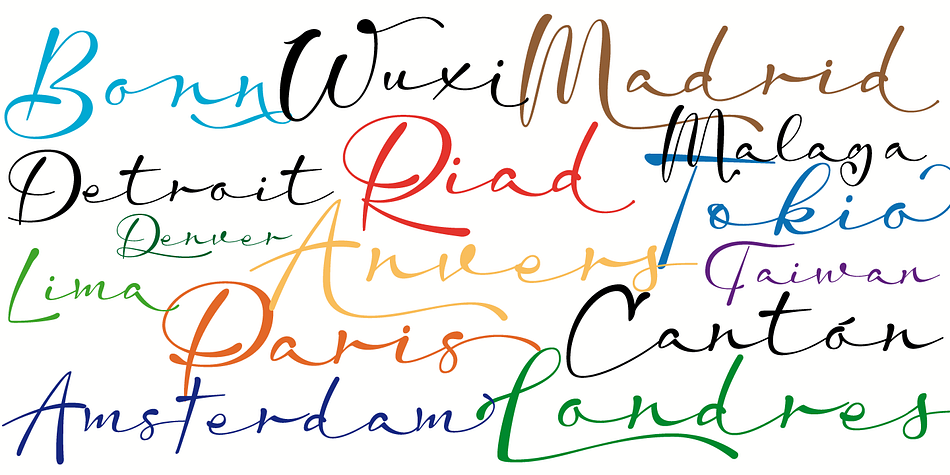 Bonn Wuxi Madrid
Detroit Riad Malaga
Denver Anvers Tokio
Lima Taiwan
Paris Cantón
Amsterdam Londres